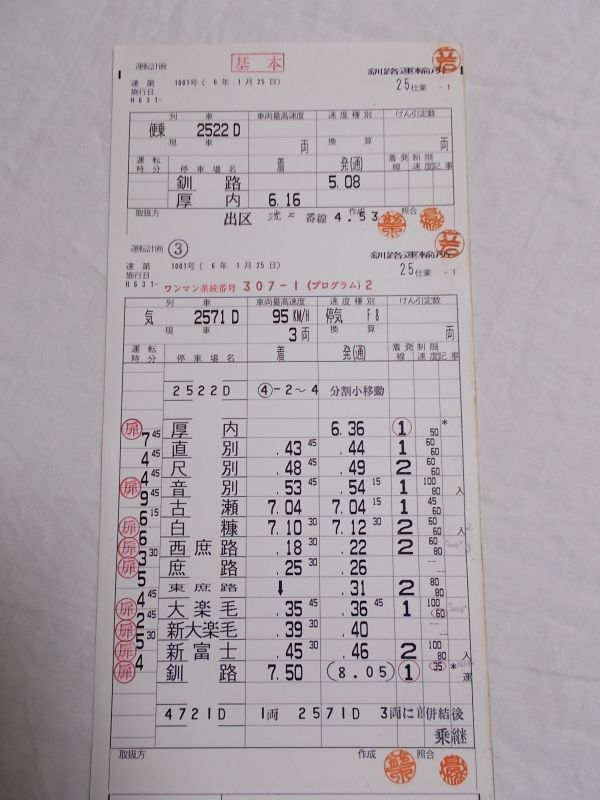 運転計画 基本 釧路運輸所
達第 1001号(6年1月25日) 25仕業 -1
施行日
H631-
列車 車両最高速度 速度種別 けん引定数
便乗 2522D
現車 両 換算 両
運転時分 停車場名 着 発(通) 着発線 制限速度 記事
釧路 5.08
厚内 6.16
取扱方 出区 番線 4.53 作成 照合
運転計画 ③ 釧路運輸所
達第 1001号(6年1月25日) 25仕業 -1
施行日
H631-
ワンマン系統番号 307-1 (プログラム)2
列車 車両最高速度 速度種別 けん引定数
気 2571D 95KM/H 停気 F8
現車 3両 換算 両
運転時分 停車場名 着 発(通) 着発線 制限速度 記事
2522D ④-2~4 分割小移動
扉 厚内 6.36 1 50 *
7 45 直別 .43 45 .44 1 60 60
4 45 尺別 .48 45 .49 2 60 60
扉 4 45 音別 .53 45 .54 15 1 100 80 入
9 45 古瀬 7.04 7.04 15 1 45 60
扉 6 15 白糠 7.10 30 7.12 30 2 60 60 入
扉 6 西庶路 .18 30 .22 2 60 80
扉 3 30 庶路 .25 30 .26
5 東庶路 ↓ .31 2 80 80
扉 4 45 大楽毛 .35 45 .36 45 1 100 60
扉 2 45 新大楽毛 .39 30 .40
扉 5 30 新富士 .45 30 .46 2 100 80 入
扉 4 釧路 7.50 (8.05) 1 35 * 運
4721D 1両 2571D 3両に前併結後
乗継
取扱方 作成 照合